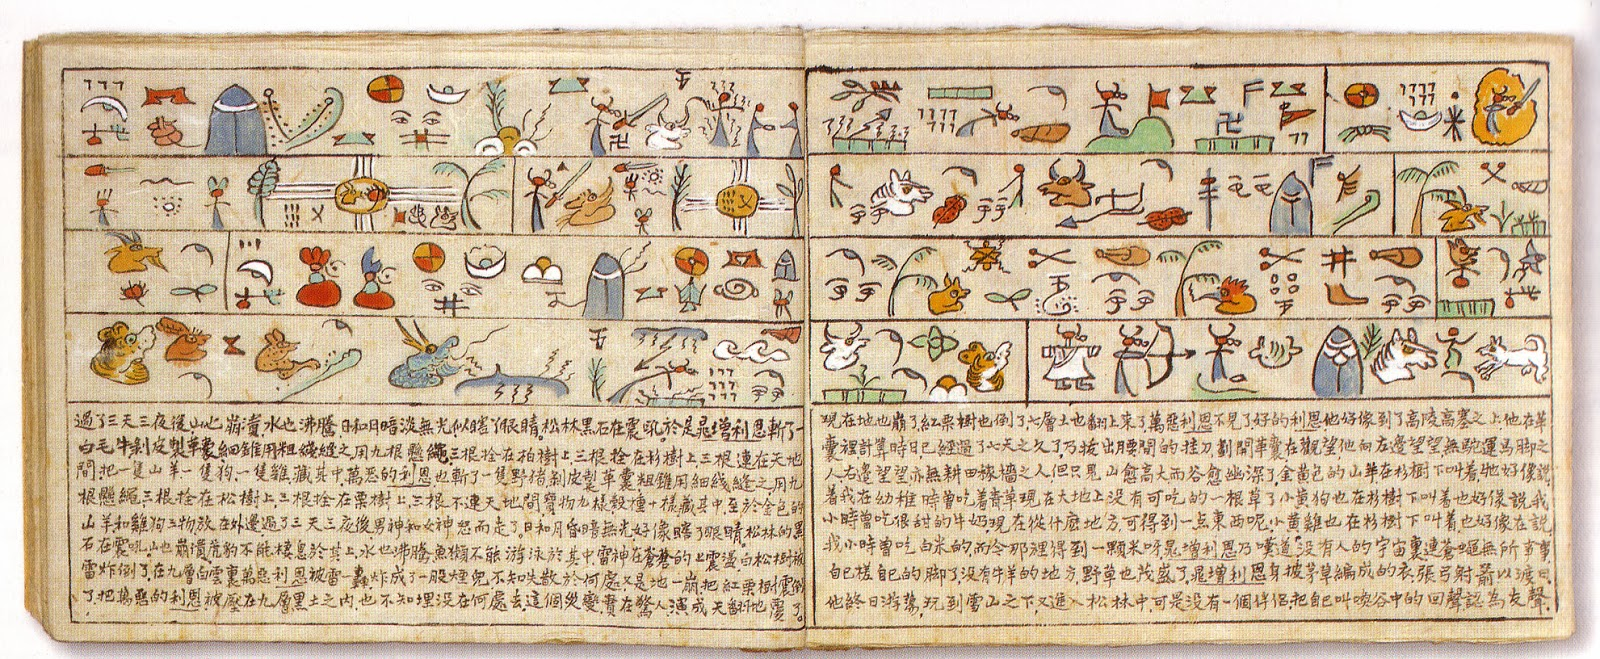 過了三天三夜後山也崩潰水也沸騰日和月暗淡無光似瞎了眼睛松林黑石在震吼於是晁增利恩斬了一
白毛牛剝皮製革囊細錐用粗綫縫之用九根懸繩三根拴在柏樹上三根拴在杉樹上三根連在天地
間把一隻山羊一隻狗、一隻雞藏其中萬悪的利恩也斬了一隻野猪剝皮製革囊粗錐用細綫縫之用九
根懸繩三根拴在松樹上三根拴在栗樹上三根不連天地間寶物九樣穀種十樣藏其中至於金色的
山羊和雞狗三物放在外邊過了三天三夜後男神和女神怒而走了日和月昏暗無光好像瞎了眼睛松林的黑
石在震吼山也崩潰虎豹不能棲息於其上水也沸騰魚獺不能游泳於其中雷神在蒼蒼的上震盪白松樹被
雷炸倒了在九層白雲裏萬惡利恩被雷一轟炸成了一股煙兒不知失散於何處又是地一崩把紅栗樹震倒了
了把萬惡的利恩被壓在九層黑土之内也不知埋没在何處去這個災變實在驚人演成天翻地覆了。
現在地也崩了紅栗樹也倒了七層土也翻上來了萬惡利恩不見了好的利恩他好像到了高陵高寨之上他在革
囊裡計算時日已經過了七天之久了乃拔出腰間的挂刀劃開革囊在觀望他向左邊望望無馱運馬脚之
人右邊望望亦無耕田嫁檣之人但只見山愈高大而谷愈幽深了金黃色的山羊在杉樹下叫着牠好像説
着我在幼稚時曾吃着青草現在大地上没有可吃的一根草了小黄狗也在杉樹下叫着也好像説我
小時曾吃很甜的牛奶現在從什麼地方可得到一点東西呢小黄雞也在杉樹下叫着也好像在説
我小時曾吃白米的而今那裡得到一顆米呀晁增利恩乃嘆道没有人的宇宙裏連蒼蠅無所事事
自己搓自己的脚了没有牛羊的地方野草也茂盛了晁增利恩身披茅草編成的衣張弓射箭以渡日
他終日游蕩玩到雪山之下又進入松林中可是没有一個伴侶把自己叫喚谷中的回聲認為友聲